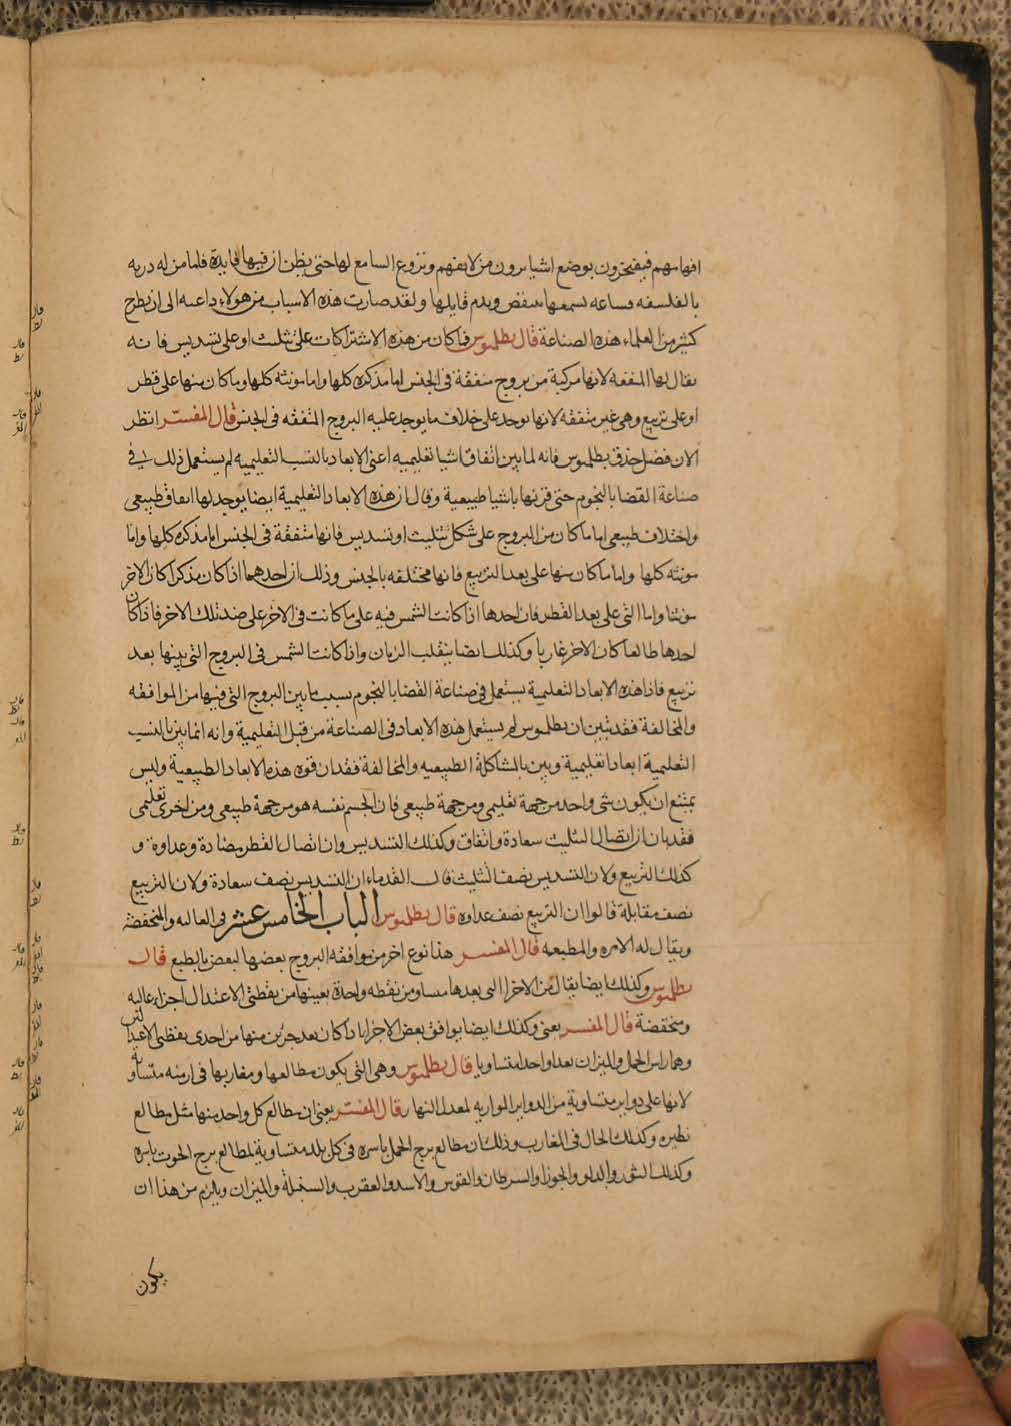 افهامهم فيفتخرون بوضع اشيا يرون من لا يفهم وتروع السامع لها حتى يظن ان فيها فايدة فاما من له دربه
بالفلسفه فساعه يسمعها ينقض ويذم قايلها ولقد صارت هذه الاسباب من هولاء داعيه الى ان يطرح
كثير من العلماء هذه الصناعة قال بطلميوس فما كان من هذه الاشتراكات على تثليث او على تسديس فانه
يقال لها المتفقة لانها مركبة من بروج متفقة فى الجنس اما مذكره كلها واما مونثه كلها وما كان منها على قطر
او على تربيع وهى غير متفقه لانها توجد على خلاف ما يوجد عليه البروج المتفقه فى الجنس قال المفسر انظر
الان فضل حذق بطلميوس فانه لما بين اتفاق اشيا تعليميه اعنى الابعاد بالنسب التعليميه لم يستعمل ذلك فى
صناعة القضا بالنجوم حتى قرنها باشيا طبيعية وقال ان هذه الابعاد التعليمية ايضا يوجد لها اتفاق طبيعى
واختلاف طبيعى اما ما كان من البروج على شكل تثليث او تسديس فانها متفقة فى الجنس اما مذكره كلها واما
مونثه كلها واما ما كان منها على بعد التربيع فانها مختلفه بالجنس وذلك ان احدهما اذا كان مذكرا كان الاخر
مونثا واما التى على بعد القطر فان احدها اذا كانت الشمس فيه على ما كانت فى الاخر على ضد تلك الاخر فاذا كان
احدها طالعا كان الاخر غاربا وكذلك ايضا ينقلب الزمان واذا كانت الشمس فى البروج التى بينها بعد
تربيع فاذا هذه الابعاد التعليمية يستعمل فى صناعة القضا بالنجوم بسبب ما بين البروج التى فيها من الموافقه
والمخالفة فقد تبين ان بطلميوس لم يستعمل هذه الابعاد فى الصناعة من قبل التعليمية وانه انما بين بالنسب
التعليمية ابعادا تعليمية وبين بالمشاكلة الطبيعيه والمخالفة فقدان قوه هذه الابعاد الطبيعية وليس
يمتنع ان يكون شى واحد من جهة تعليمى ومن جهة طبيعى فان الجسم نفسه هو من جهة طبيعى ومن اخرى تعلمى
فقد بان ان اتصال التثليث سعادة واتفاق وكذلك التسديس وان اتصال القطر مضادة وعداوة و
كذلك التربيع ولان التسديس نصف التثليث قالت القدماء ان التسديس نصف سعادة ولان التربيع
نصف مقابلة قالوا ان التربيع نصف عداوه قال بطلميوس الباب الخامس عشر فى العاليه والمنخفضة
ويقال له الامره والمطيعه قال المفسر هذا نوع اخر من موافقه البروج بعضها لبعض بالطبع قال
بطلميوس وكذلك ايضا يقال من الاجزا التى بعدها مساو من نقطه واحدة بعينها من نقطتى الاعتدال اجزاء عاليه
ومنخفضة قال المفسر يعنى وكذلك ايضا يوافق بعض الاجزا اذا كان بعد جزئين منها من احدى نقطتى الاعتدالين
وهما راس الحمل والميزان بعدا واحدا متساويا قال بطلميوس وهى التى يكون مطالعها ومغاربها فى ازمنه متساويه
لانها على دواير متساوية من الدواير الموازيه لمعدل النهار قال المفسر يعنى ان مطالع كل واحد منها مثل مطالع
نظيره وكذلك الحال فى المغارب وذلك ان مطالع برج الحمل باسره فى كل بلد متساوية لمطالع برج الحوت باسره
وكذلك الثور والدلو والجوزا والسرطان والقوس والاسد والعقرب والسنبلة والميزان ويلزم من هذا ان
يكون